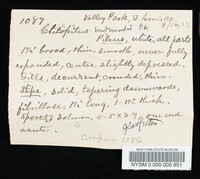 1087 Valley Park, St Louis Co.
Clitopilus underwoodii Pk 8/14/02
Pileus, white, all parts
1½ broad, thin, smooth, never fully
expanded, centre slightly depressed.
Gills, decurrent, crowded, thin.
Stipe, solid, tapering downwards,
fibrillose, 1½ long, 1-1½ thick.
Spores salmon, 4-5x3 one end
acute.
Glatfelter
Compare 1086
NEW YORK STATE MUSEUM
NYSM 0 000 005 851